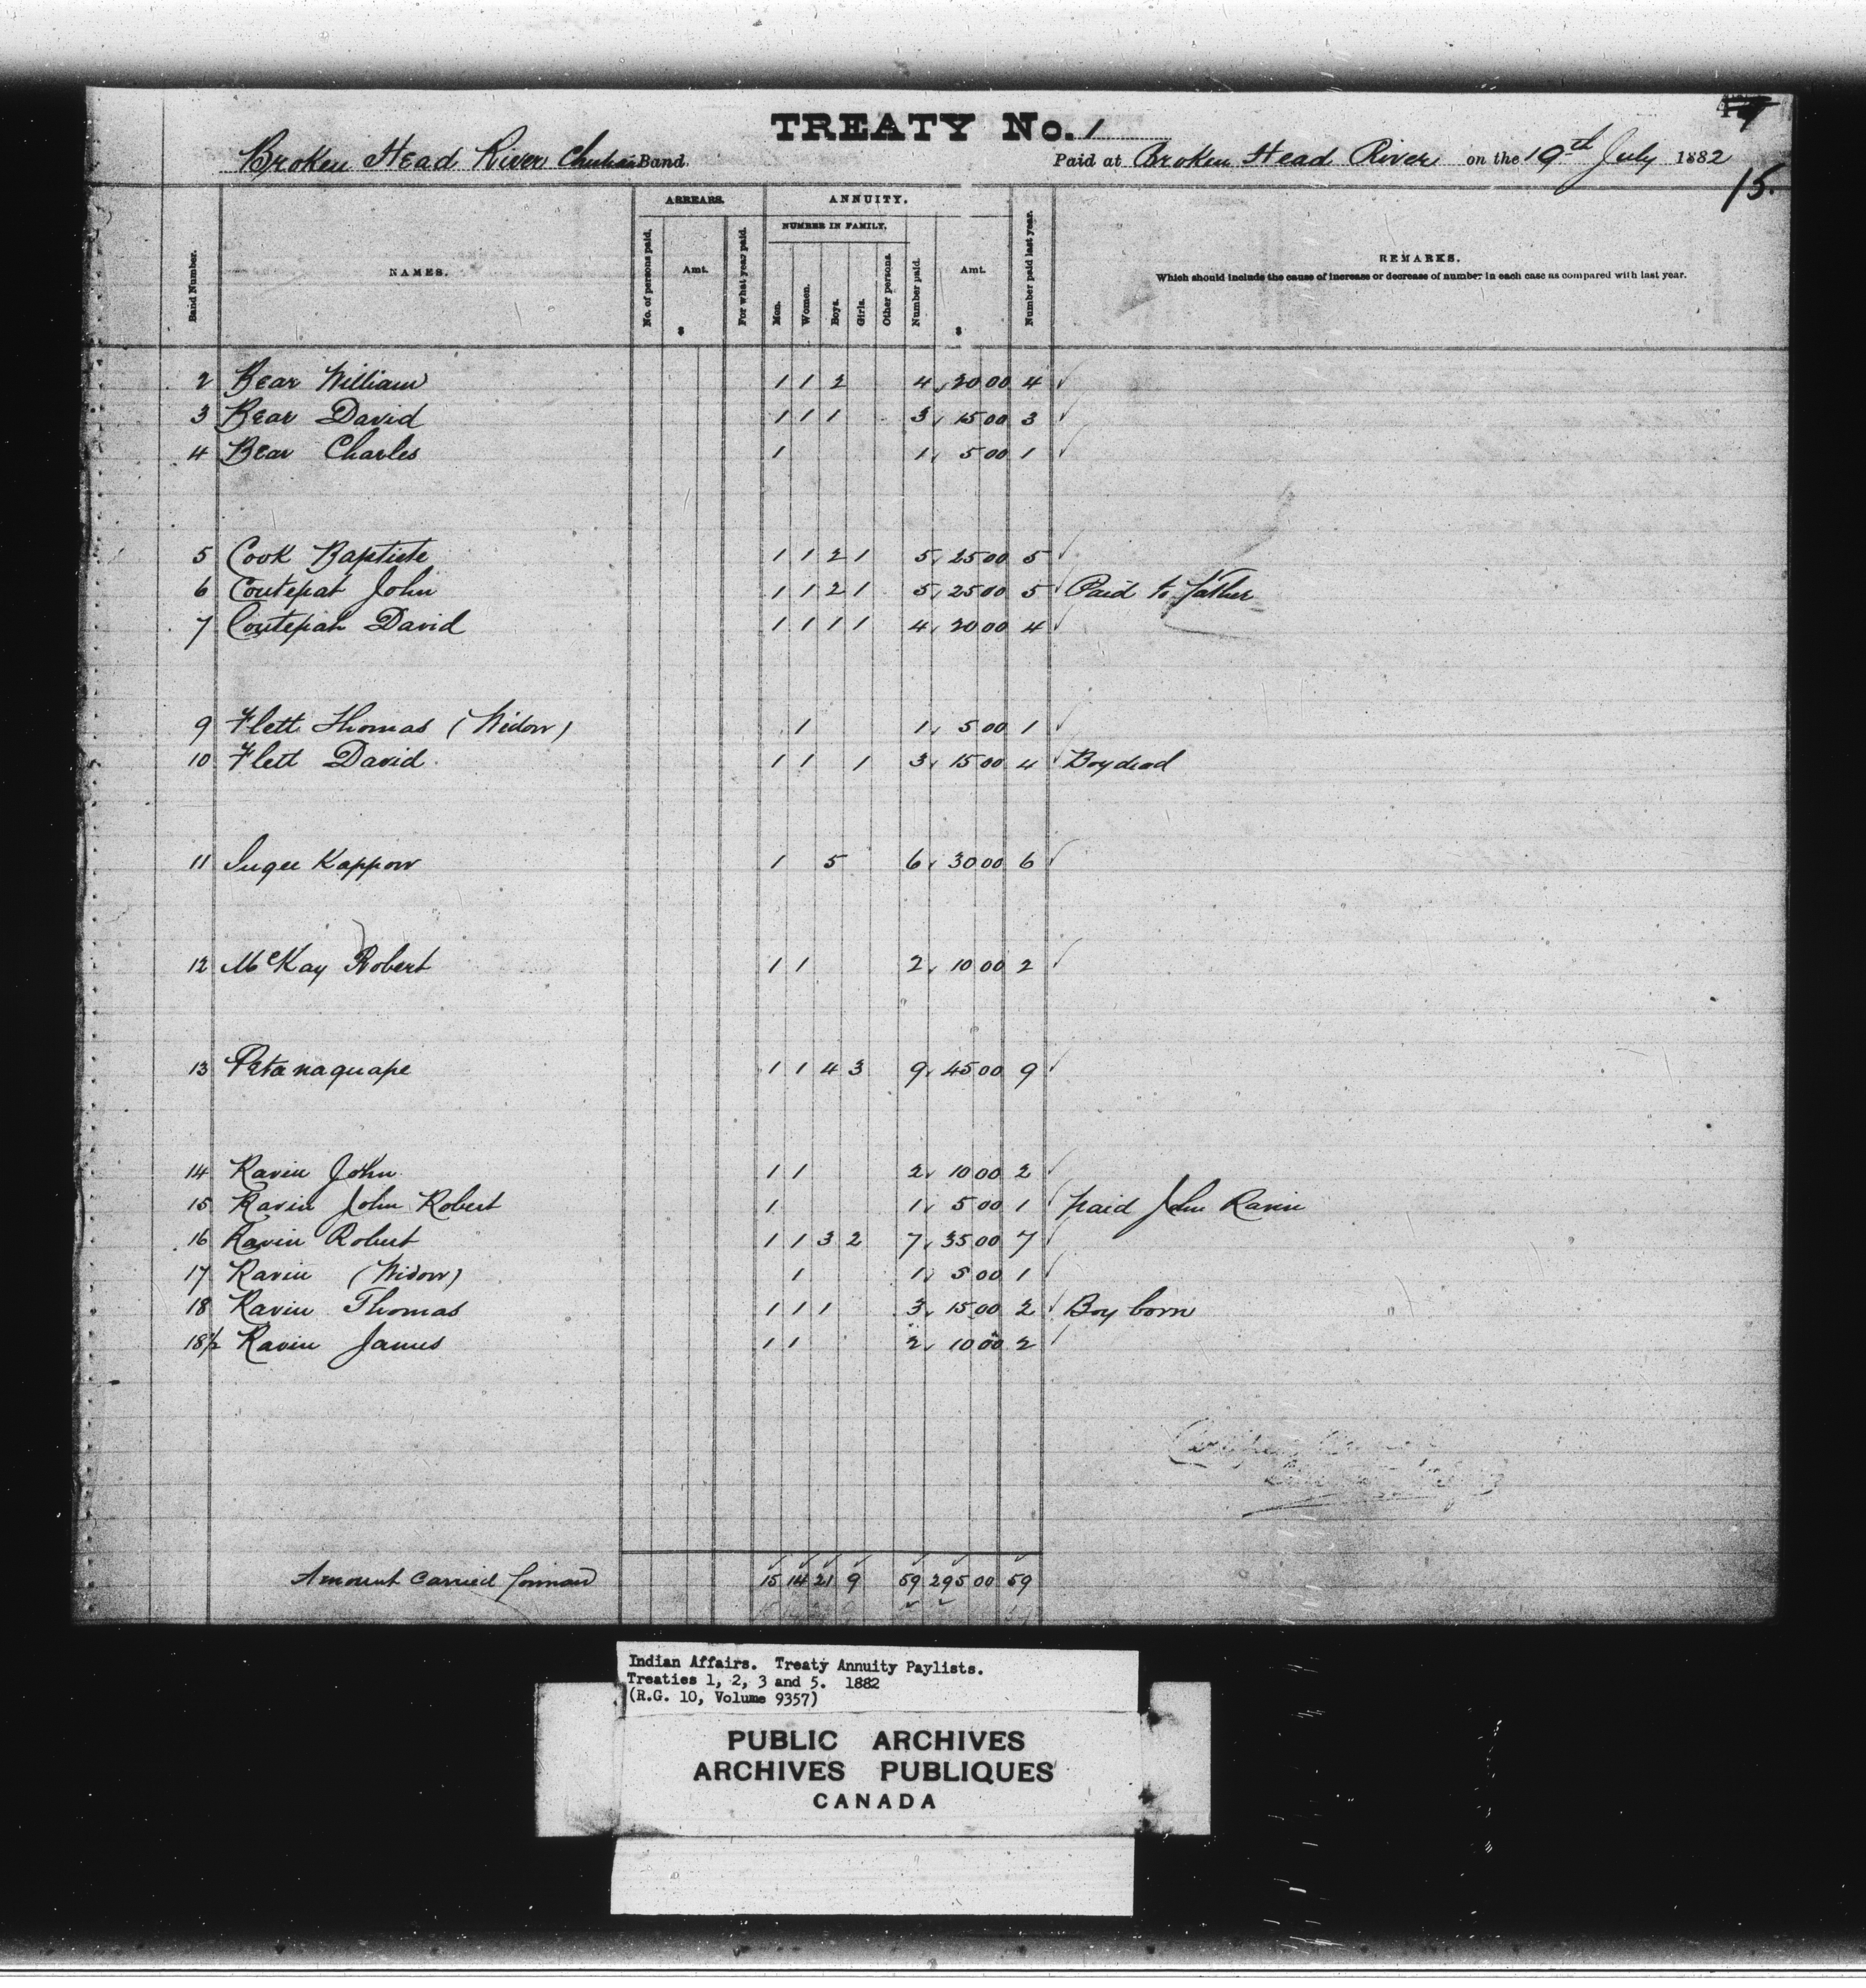 TREATY No. 1
Broken Head River Band. Paid at Broken Head River on the 19th July 1882
15.
Band Number. NAMES. ARREARS. No. of persons paid. Amt. $ For what year paid. ANNUITY. NUMBER IN FAMILY. Men. Women. Boys. Girls. Other persons. Number paid. Amt. $ Number paid last year. REMARKS.
Which should include the cause of increase or decrease of number in each case as compared with last year.
2 Bear William 1 1 2 4 20 00 4
3 Bear David 1 1 1 3 15 00 3
4 Bear Charles 1 1 5 00 1
5 Cook Baptiste 1 1 2 1 5 25 00 5
6 Coutepat John 1 1 2 1 5 25 00 5 Paid to father
7 Coutepah David 1 1 1 1 4 20 00 4
9 Flett Thomas (Widow) 1 1 5 00 1
10 Flett David 1 1 1 3 15 00 4 Boy dead
11 Kappow 1 5 6 30 00 6
12 McKay Robert 1 1 2 10 00 2
13 Petanaquape 1 1 4 3 9 45 00 9
14 Raven John 1 1 2 10 00 2
15 Raven John Robert 1 1 5 00 1 paid John Raven
16 Raven Robert 1 1 3 2 7 35 00 7
17 Raven (Widow) 1 1 5 00 1
18 Raven Thomas 1 1 1 3 15 00 2 Boy born
18½ Raven James 1 1 2 10 00 2
Amount carried forward 15 14 21 9 59 295 00 59
Indian Affairs. Treaty Annuity Paylists.
Treaties 1, 2, 3 and 5. 1882
(R.G. 10, Volume 9357)
PUBLIC ARCHIVES
ARCHIVES PUBLIQUES
CANADA